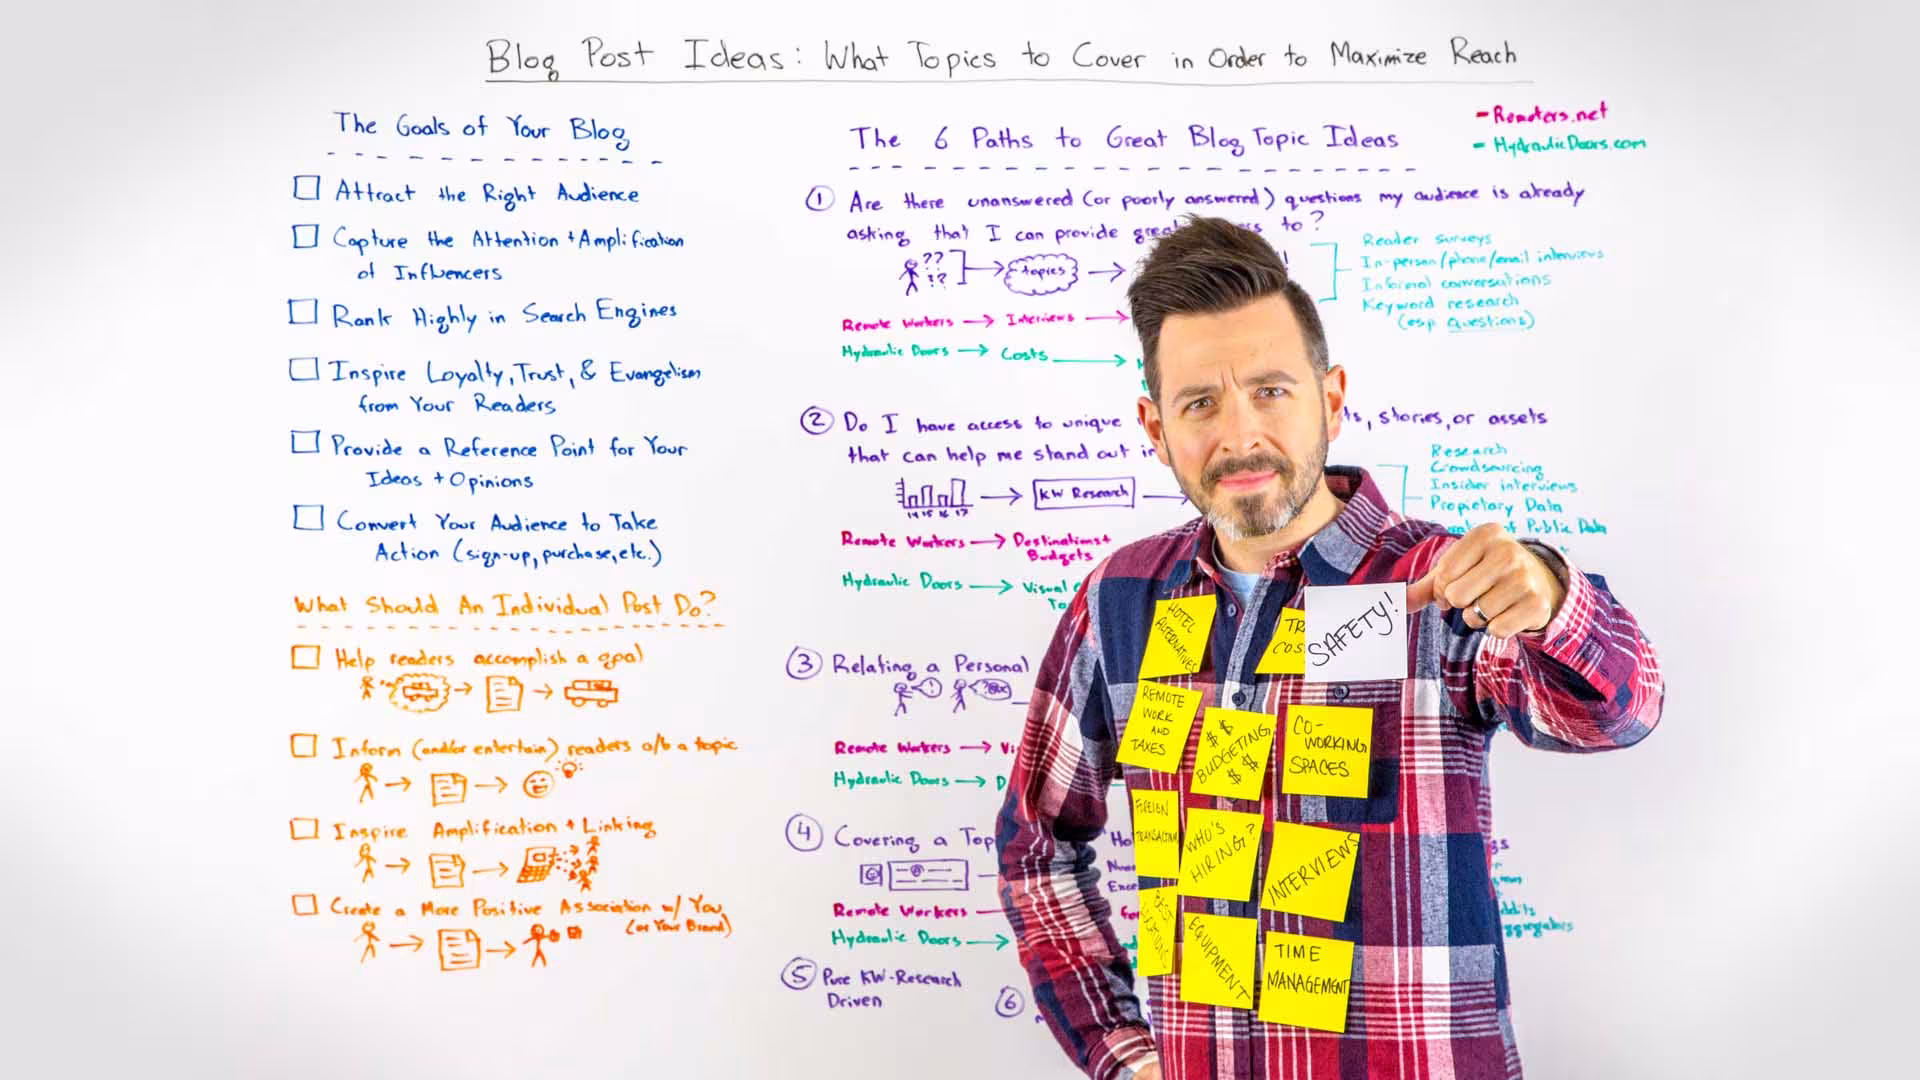 Blog Post Ideas: What Topics to Cover in Order to Maximize Reach
The Goals of Your Blog
Attract the Right Audience
Capture the Attention + Amplification
of Influencers
Rank Highly in Search Engines
Inspire Loyalty, Trust, & Evangelism
from Your Readers
Provide a Reference Point for Your
Ideas + Opinions
Convert Your Audience to Take
Action (sign-up, purchase, etc.)
What Should An Individual Post Do?
Help readers accomplish a goal
Inform (and/or entertain) readers a/b a topic
Inspire Amplification + Linking
Create a More Positive Association w/ You
(or Your Brand)
The 6 Paths to Great Blog Topic Ideas
- Remoters.net
- HydraulicDoors.com
1 Are there unanswered (or poorly answered) questions my audience is already
asking that I can provide to?
?? !?
topics
Reader surveys
In-person/phone/email interviews
Informal conversations
Keyword research
(esp questions)
Remote Workers → Interviews →
Hydraulic Doors → Costs →
2 Do I have access to unique stories, or assets
that can help me stand out in
14 15 16 17
KW Research
Research
Crowdsourcing
Insider interviews
Proprietary Data
of Public Data
Remote Workers → Destinations +
Budgets
Hydraulic Doors → Visual
3 Relating a Personal
Remote Workers →
Hydraulic Doors →
4 Covering a
Remote Workers
Hydraulic Doors →
5 Pure KW-Research
Driven
6
HOTEL
ALTERNATIVES
SAFETY!
REMOTE
WORK
AND
TAXES
$$
BUDGETING
$$
CO-
WORKING
SPACES
WHO'S
HIRING?
INTERVIEWS
EQUIPMENT
TIME
MANAGEMENT